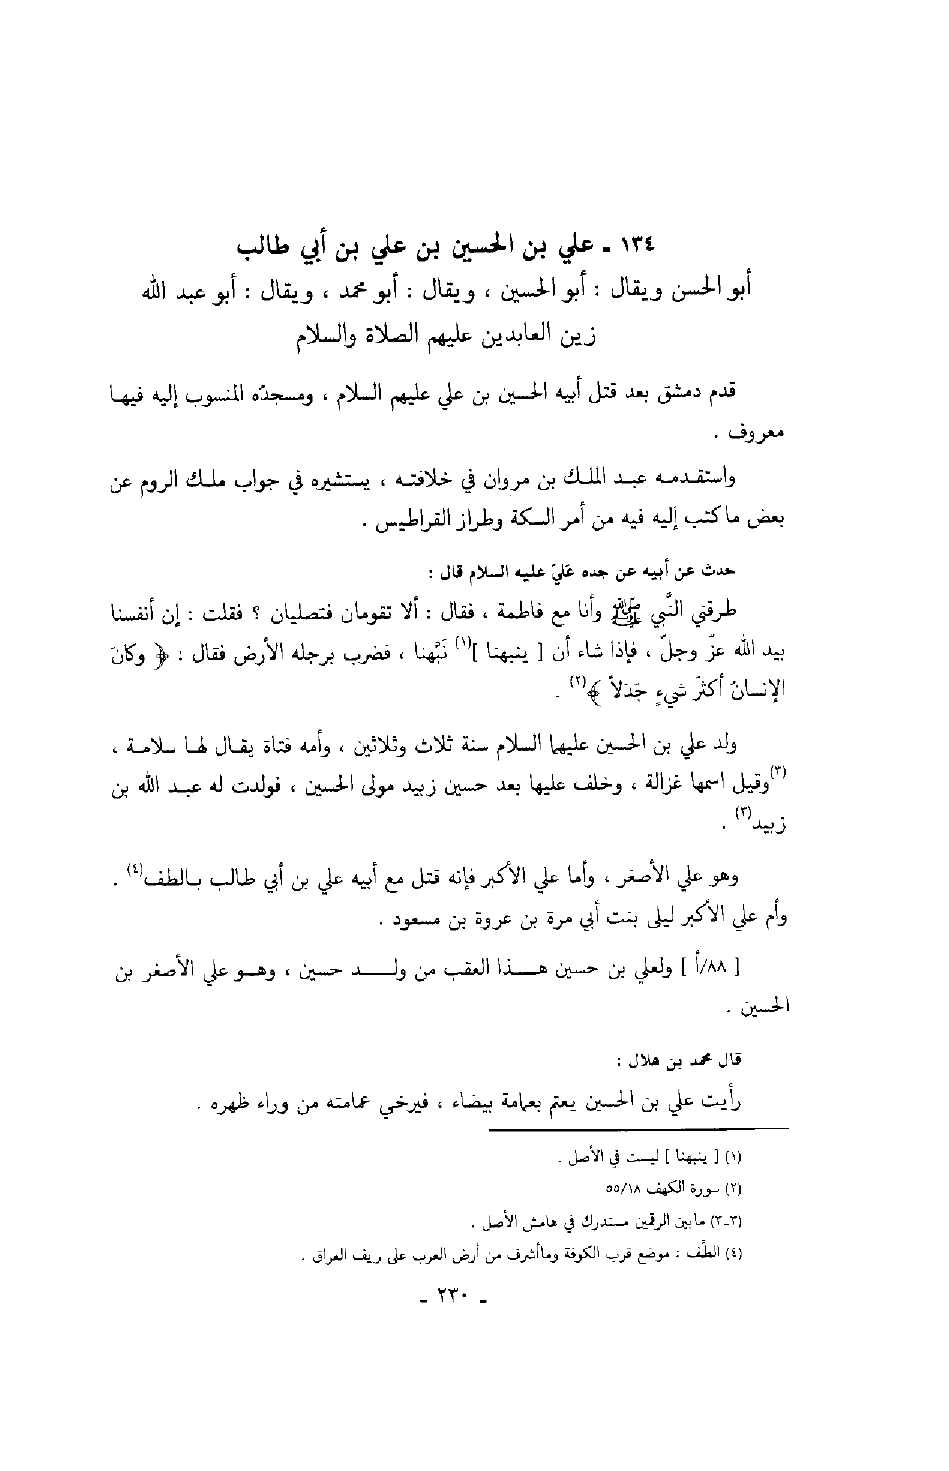 ١٣٤ ـ علي بن الحسين بن علي بن أبي طالب
أبو الحسن ويقال : أبو الحسين ، ويقال : أبو محمد ، ويقال : أبو عبد الله
زين العابدين عليهم الصلاة والسلام
قدم دمشق بعد قتل أبيه الحسين بن علي عليهم السلام ، ومسجدُه المنسوب إليه فيها
معروف .
واستقدمه عبد الملك بن مروان في خلافته ، يستشيره في جواب ملك الروم عن
بعض ما كتب إليه فيه من أمر السكة وطراز القراطيس .
حدث عن أبيه عن جده عَليّ عليه السلام قال :
طرقني النَّبي ﷺ وأنا مع فاطمة ، فقال : ألا تقومان فتصليان ؟ فقلت : إن أنفسنا
بيد الله عزّ وجلّ ، فإذا شاء أن [ ينبهنا ](١) نَبَّهنا ، فضرب برجله الأرض فقال : ﴿ وكانَ
الإنسانُ أكثرَ شيءٍ جَدَلاً ﴾(٢) .
ولد علي بن الحسين عليها السلام سنة ثلاث وثلاثين ، وأمه فتاة يقال لها سلامة ،
(٣)وقيل اسمها غزالة ، وخلف عليها بعد حسين زبيد مولى الحسين ، فولدت له عبد الله بن
زبيد(٣) .
وهو علي الأصغر ، وأما علي الأكبر فإنه قتل مع أبيه علي بن أبي طالب بالطف(٤) .
وأم علي الأكبر ليلى بنت أبي مرة بن عروة بن مسعود .
[ ٨٨/أ ] ولعلي بن حسين هذا العقب من ولد حسين ، وهو علي الأصغر بن
الحسين .
قال محمد بن هلال :
رأيت علي بن الحسين يعتم بعمامة بيضاء ، فيرخي عمامته من وراء ظهره .
(١) [ ينبهنا ] ليست في الأصل .
(٢) سورة الكهف ٥٥/١٨
(٣-٣) مابين الرقمين مستدرك في هامش الأصل .
(٤) الطَّف : موضع قرب الكوفة وماأشرف من أرض العرب على ريف العراق .
ـ ٢٣٠ ـ